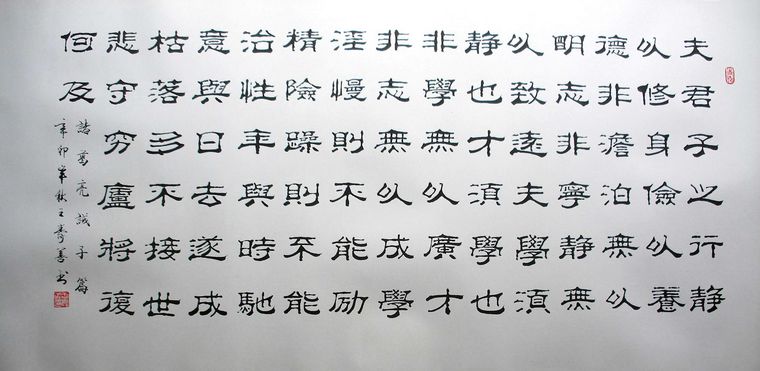 夫君子之行静
以修身儉以養
德非澹泊無以
明志非寧静無
以致遠夫學須
静也才須學也
非學無以廣才
非志無以成學
淫慢則不能励
精險躁則不能
治性年與時馳
意與日去遂成
枯落多不接世
悲守穷廬將復
何及
諸葛亮誡子篇
辛卯年秋王善书